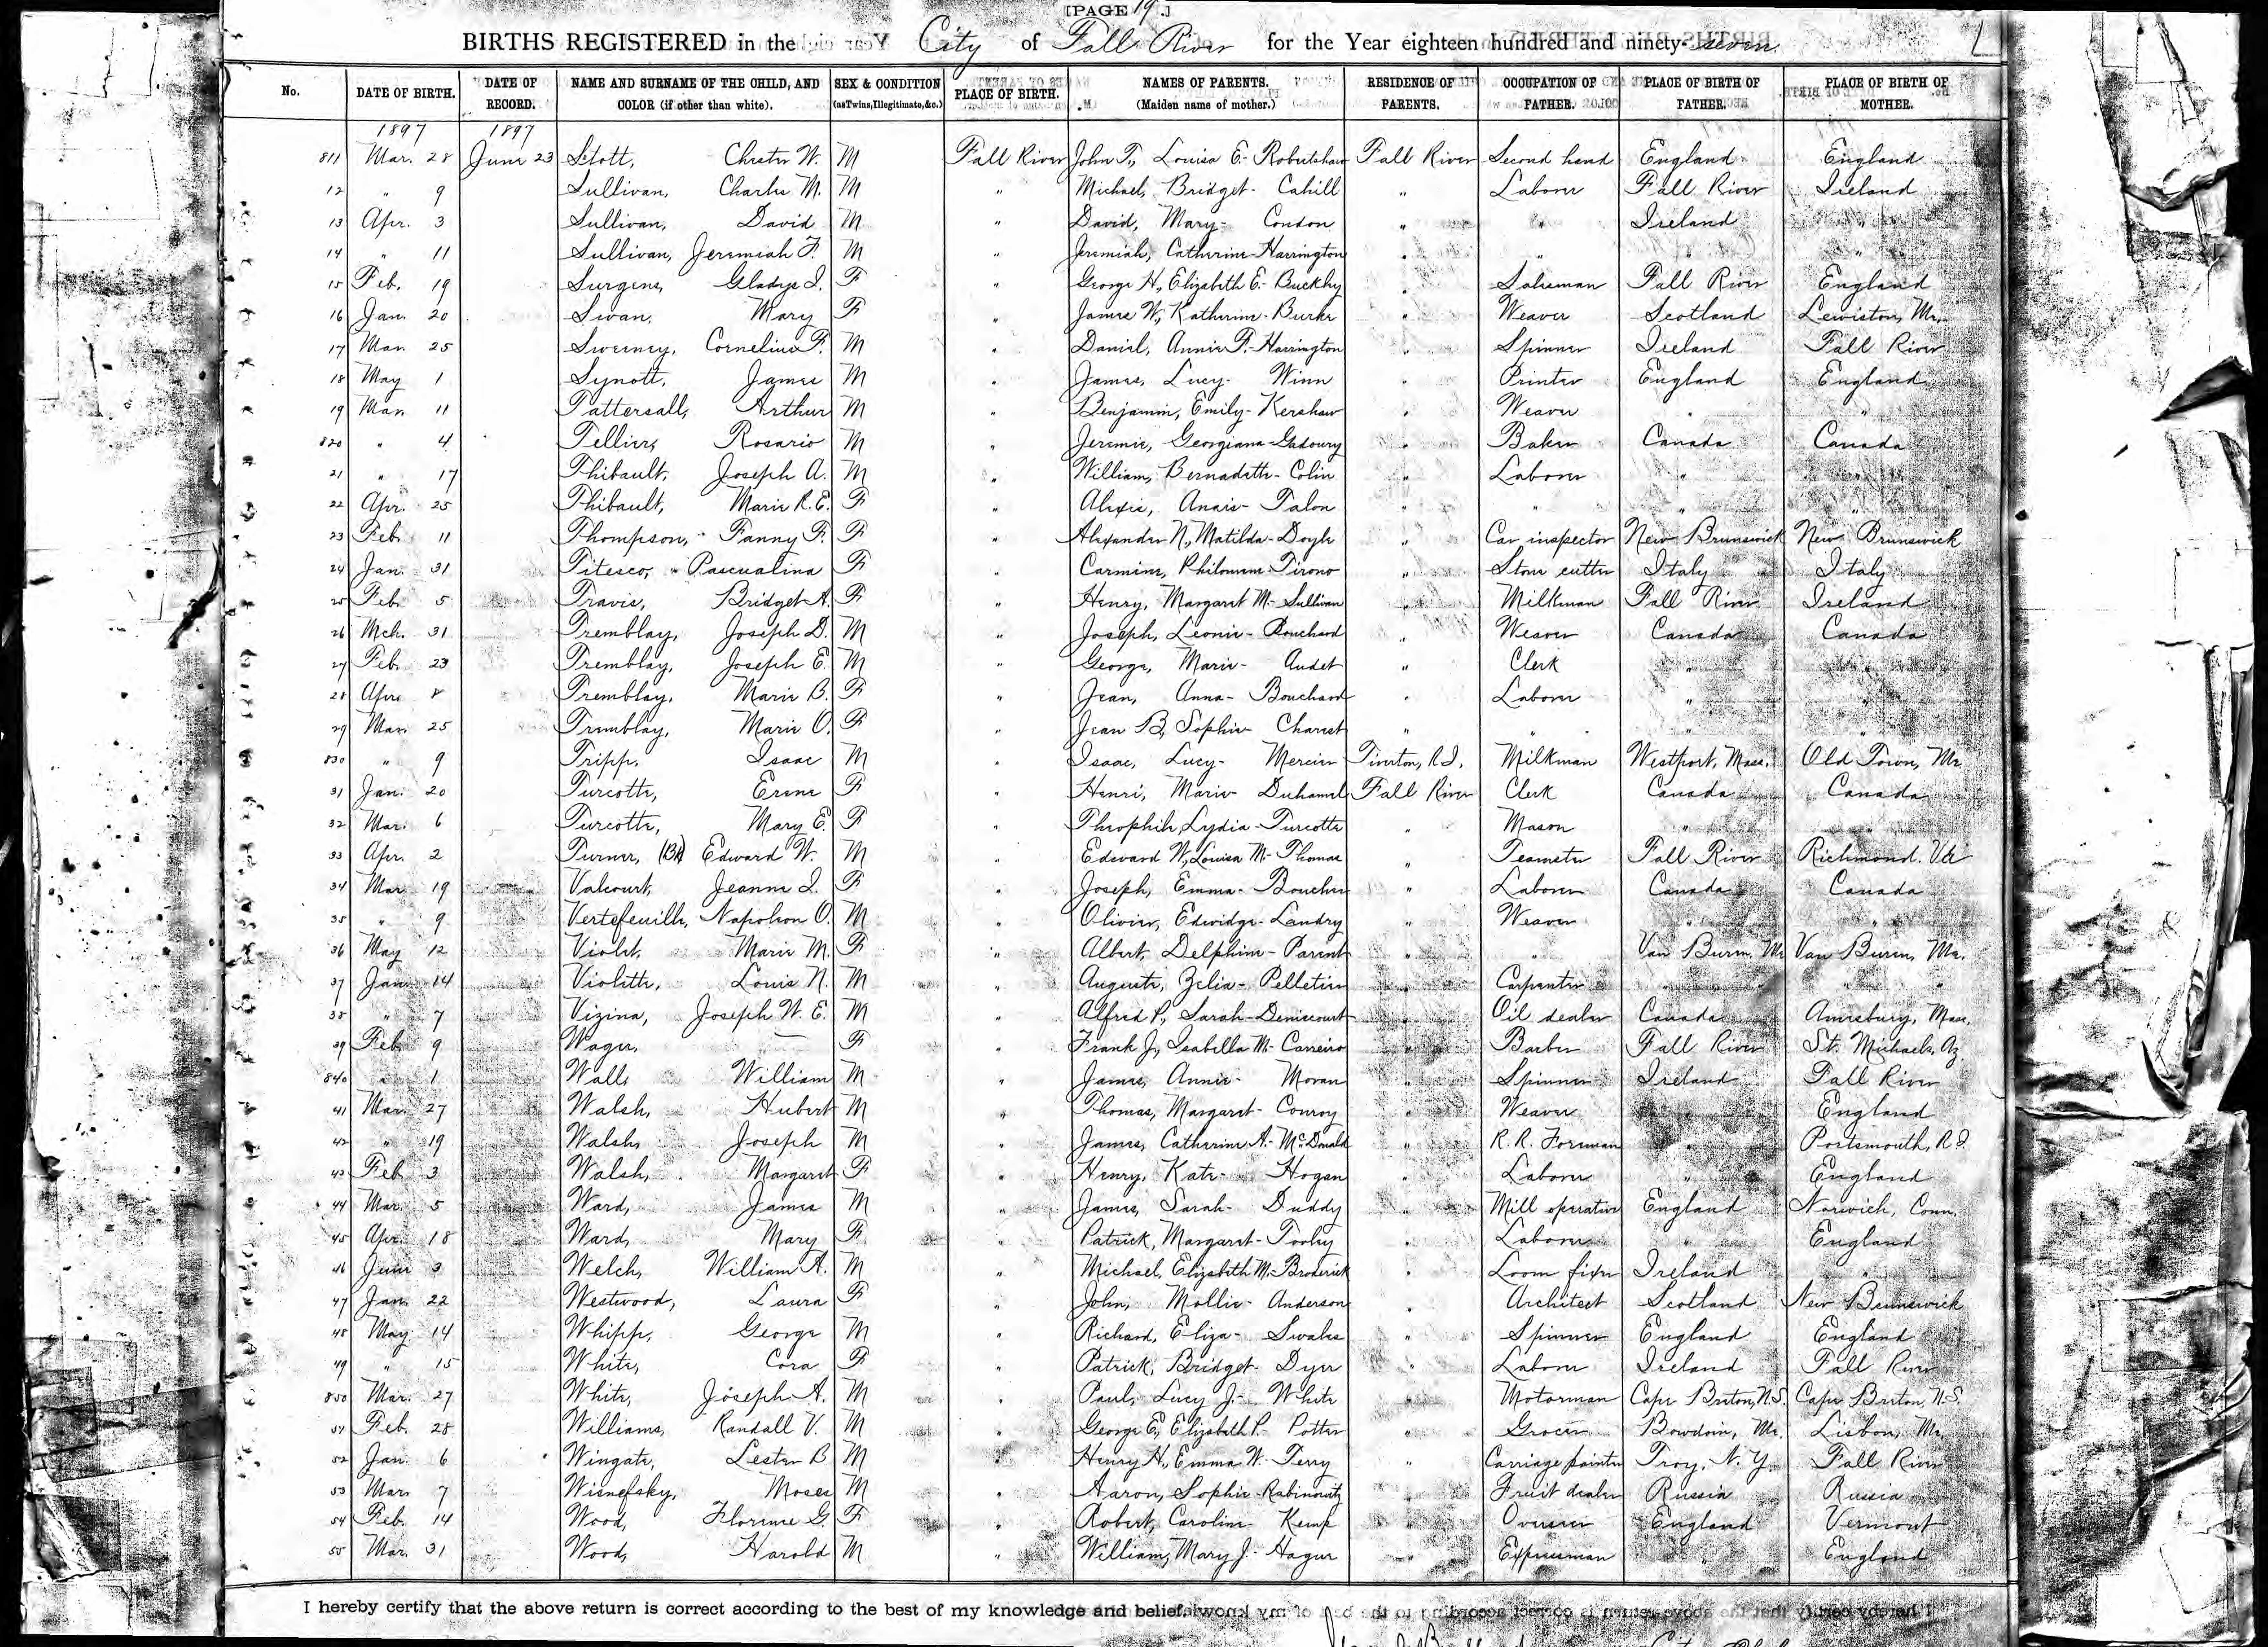 [PAGE 19.]
BIRTHS REGISTERED in the City of Fall River for the Year eighteen hundred and ninety-seven
No. DATE OF BIRTH. DATE OF RECORD. NAME AND SURNAME OF THE CHILD, AND COLOR (if other than white). SEX & CONDITION (as Twins, Illegitimate, &c.) PLACE OF BIRTH. NAMES OF PARENTS. (Maiden name of mother.) RESIDENCE OF PARENTS. OCCUPATION OF FATHER. PLACE OF BIRTH OF FATHER. PLACE OF BIRTH OF MOTHER.
1897 1897
811 Mar. 28 June 23 Stott, Chester W. M Fall River John T., Louisa E. Robertshaw Fall River Second hand England England
12 " 9 Sullivan, Charles M. M " Michael, Bridget- Cahill " Laborer Fall River Ireland
13 Apr. 3 Sullivan, David M " David, Mary- Condon " " Ireland "
14 " 11 Sullivan, Jeremiah F. M " Jeremiah, Catherine-Harrington " " " "
15 Feb. 19 Surgens, Gladys I. F " George H., Elizabeth E.- Buckley " Salesman Fall River England
16 Jan. 20 Swan, Mary F " James W., Katherine- Burke " Weaver Scotland Lewiston, Me.
17 Mar. 25 Sweeney, Cornelius F. M " Daniel, Annie F.-Harrington " Spinner Ireland Fall River
18 May 1 Synott, James M " James, Lucy- Winn " Printer England England
19 Mar. 11 Tattersall, Arthur M " Benjamin, Emily- Kershaw " Weaver " "
820 " 4 Tellier, Rosario M " Jeremie, Georgiana-Gadoury " Baker Canada Canada
21 " 17 Thibault, Joseph A. M " William, Bernadette- Colin " Laborer " "
22 Apr. 25 Thibault, Marie R. E. F " Alexis, Anais- Talon " " " "
23 Feb. 11 Thompson, Fanny F. F " Alexander N., Matilda- Doyle " Car inspector New Brunswick New Brunswick
24 Jan. 31 Titesco, Pascualina F " Carmine, Philomene-Tirono " Stone cutter Italy Italy
25 Feb. 5 Travis, Bridget A. F " Henry, Margaret M.- Sullivan " Milkman Fall River Ireland
26 Mch. 31 Tremblay, Joseph D. M " Joseph, Leonie- Bouchard " Weaver Canada Canada
27 Feb. 23 Tremblay, Joseph E. M " George, Marie- Audet " Clerk " "
28 Apr. 8 Tremblay, Marie B. F " Jean, Anna- Bouchard " Laborer " "
29 Mar. 25 Tremblay, Marie O. F " Jean B., Sophie- Charest " " " "
830 " 9 Tripp, Isaac M " Isaac, Lucy- Mercier Tiverton, R.I. Milkman Westport, Mass. Old Town, Me.
31 Jan. 20 Turcotte, Erene F " Henri, Marie- Duhamel Fall River Clerk Canada Canada
32 Mar. 6 Turcotte, Mary E. F " Theophile, Lydia- Turcotte " Mason " "
33 Apr. 2 Turner, (Bl) Edward W. M " Edward W., Louisa M.- Thomas " Teamster Fall River Richmond, Va
34 Mar. 19 Valcourt, Jeanne I. F " Joseph, Emma- Boucher " Laborer Canada Canada
35 " 9 Vertefeuille, Napoleon O. M " Olivier, Edwidge- Landry " Weaver " "
36 May 12 Violet, Marie M. F " Albert, Delphine- Parent " " Van Buren, Me. Van Buren, Me.
37 Jan. 14 Violette, Louis N. M " Auguste, Zelia- Pelletier " Carpenter " "
38 " 7 Vizina, Joseph W. E. M " Alfred P., Sarah- Deniscourt " Oil dealer Canada Amesbury, Mass.
39 Feb. 9 Wager, — F " Frank J., Isabella M.- Carreiro " Barber Fall River St. Michaels, Az.
840 " 1 Wall, William M " James, Annie- Moran " Spinner Ireland Fall River
41 Mar. 27 Walsh, Hubert M " Thomas, Margaret- Conroy " Weaver " England
42 " 19 Walsh, Joseph M " James, Catherine A.- McDonald " R. R. Foreman " Portsmouth, R.I.
43 Feb. 3 Walsh, Margaret F " Henry, Kate- Hogan " Laborer " England
44 Mar. 5 Ward, James M " James, Sarah- Duddy " Mill operative England Norwich, Conn.
45 Apr. 18 Ward, Mary F " Patrick, Margaret- Tooley " Laborer " England
46 June 3 Welch, William A. M " Michael, Elizabeth M.- Broderick " Loom fixer Ireland "
47 Jan. 22 Westwood, Laura F " John, Mollie- Anderson " Architect Scotland New Brunswick
48 May 14 Whipp, George M " Richard, Eliza- Swales " Spinner England England
49 " 15 White, Cora F " Patrick, Bridget- Dyer " Laborer Ireland Fall River
850 Mar. 27 White, Joseph A. M " Paul, Lucy J.- White " Motorman Cape Breton, N.S. Cape Breton, N.S.
51 Feb. 28 Williams, Randall V. M " George E., Elizabeth P.- Potter " Grocer Bowdoin, Me. Lisbon, Me.
52 Jan. 6 Wingate, Lester B. M " Henry H., Emma W.- Terry " Carriage painter Troy, N. Y. Fall River
53 Mar. 7 Wisnefsky, Moses M " Aaron, Sophie-Rabinowitz " Fruit dealer Russia Russia
54 Feb. 14 Wood, Florence G. F " Robert, Caroline- Kemp " Overseer England Vermont
55 Mar. 31 Wood, Harold M " William, Mary J.- Hague " Expressman " England
I hereby certify that the above return is correct according to the best of my knowledge and belief.